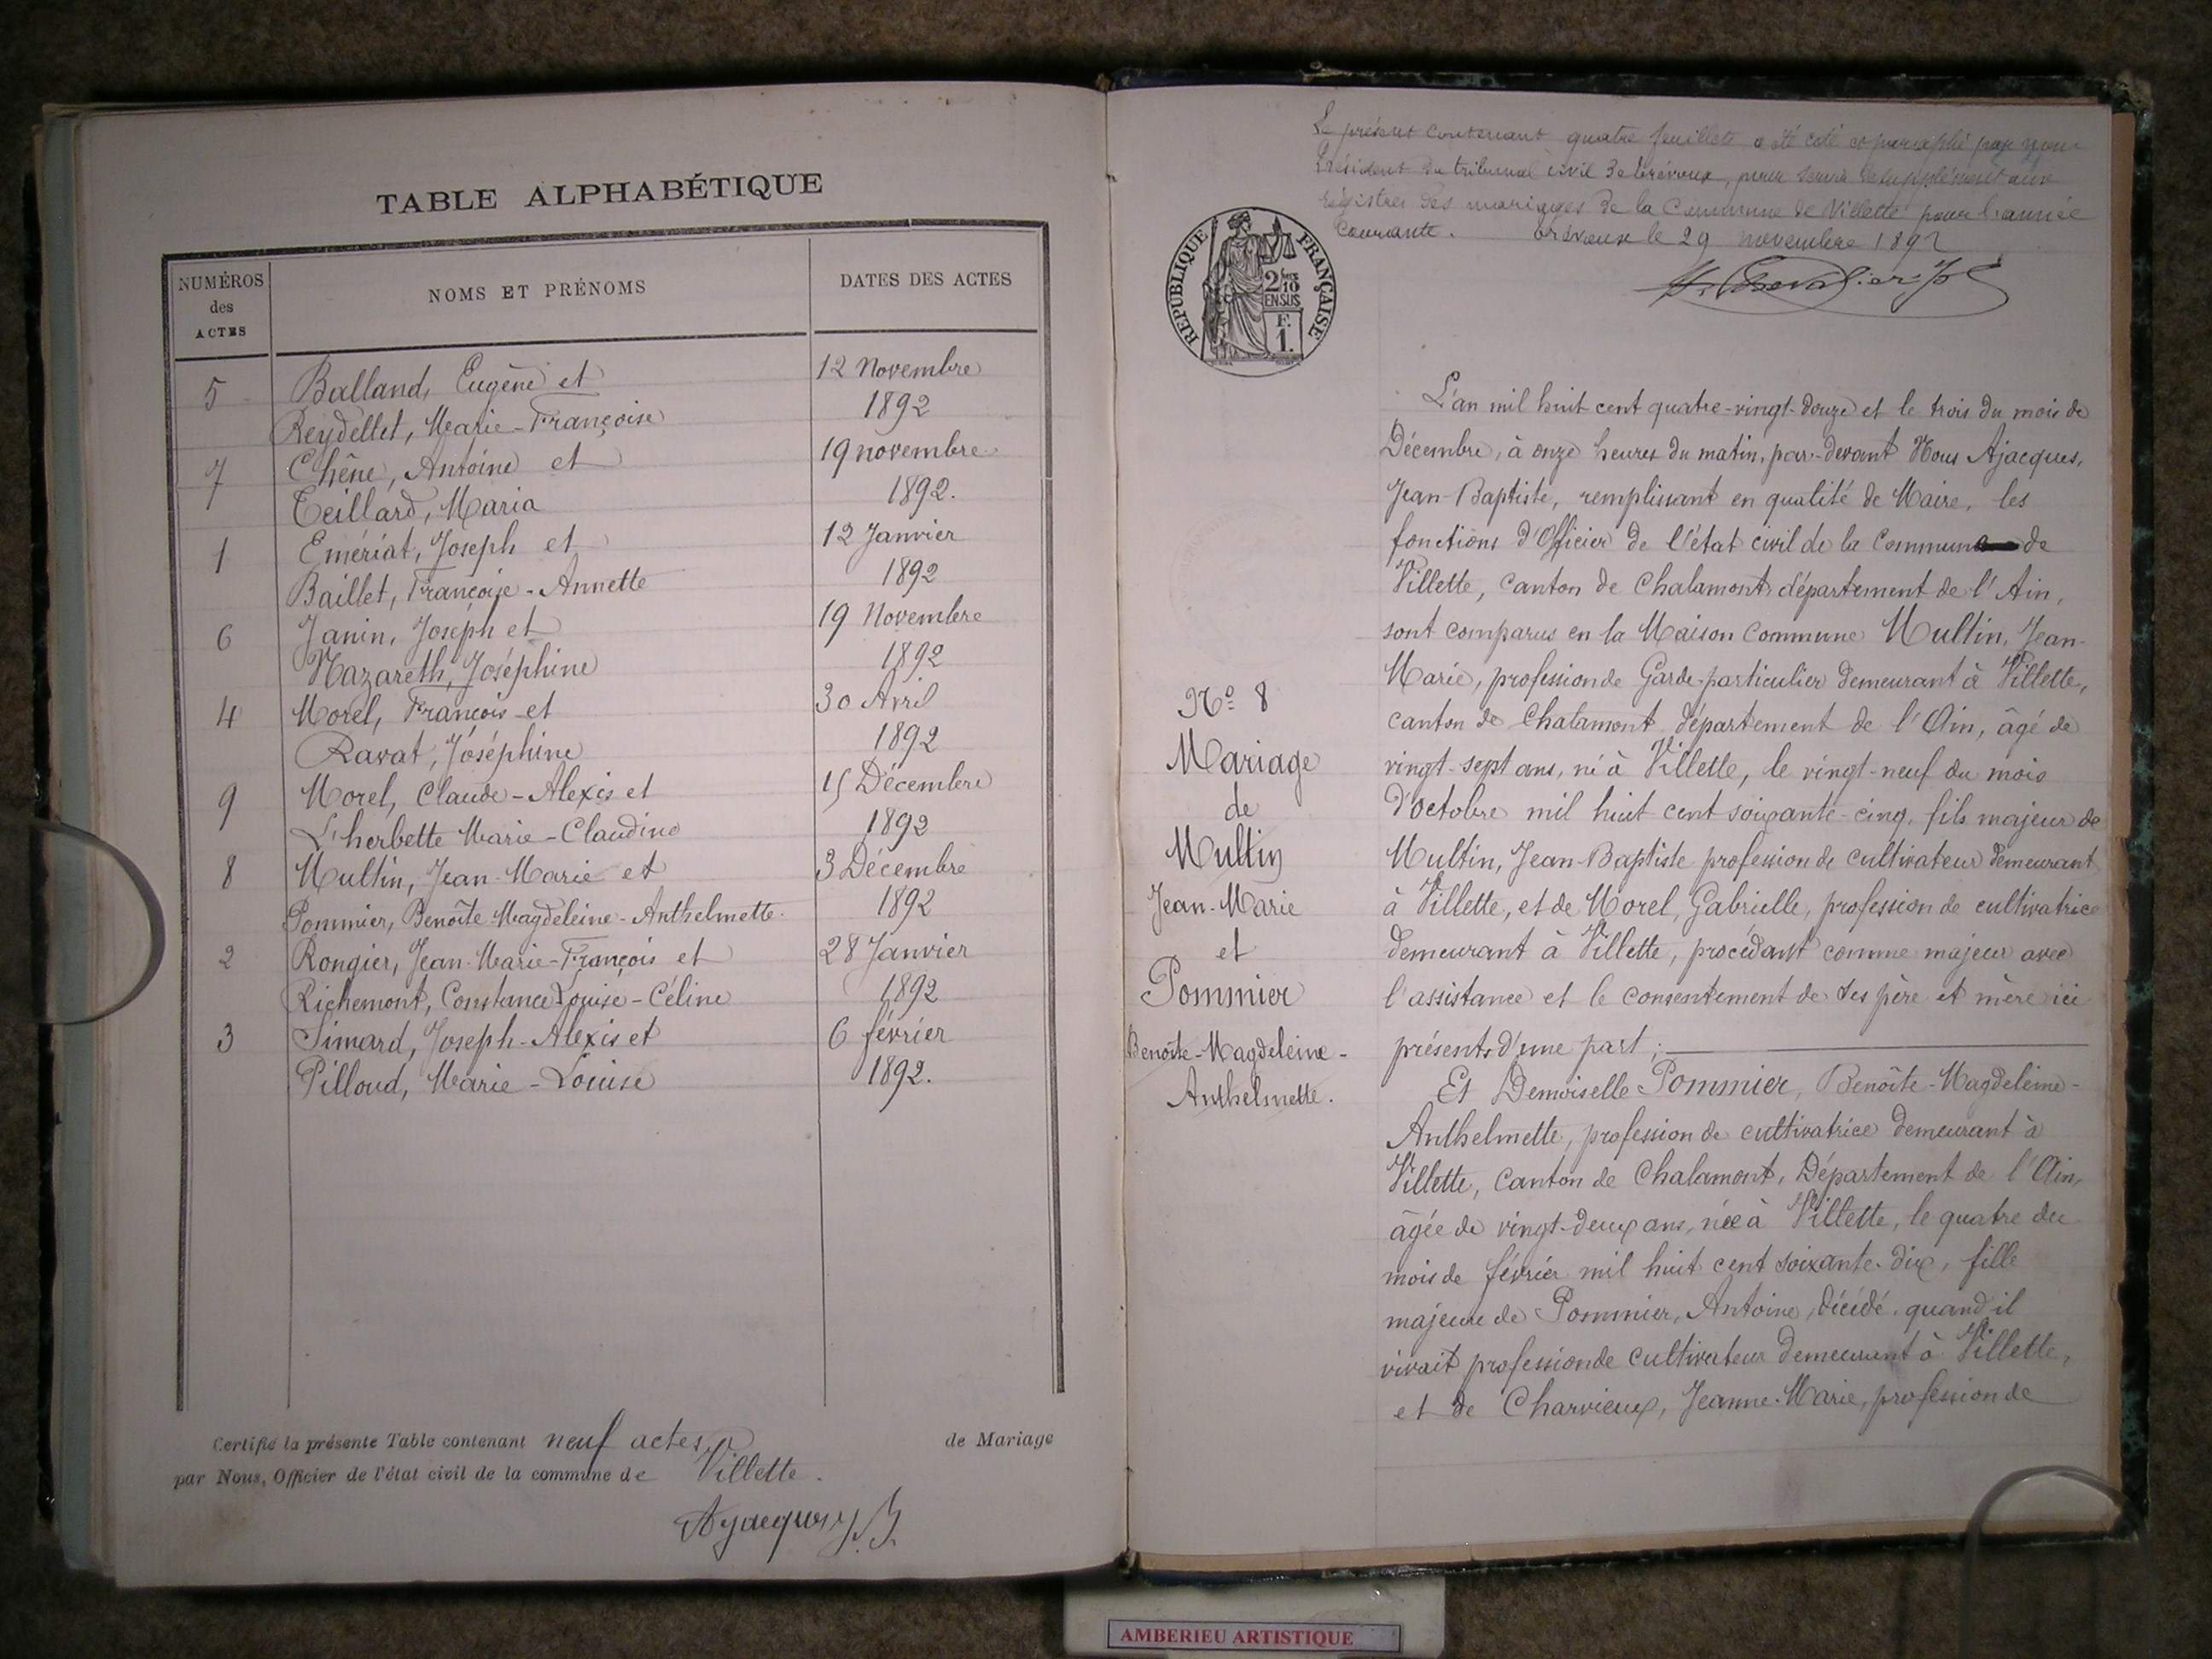 TABLE ALPHABÉTIQUE
NUMÉROS
des
ACTES
NOMS ET PRÉNOMS
DATES DES ACTES
5 Balland, Eugène et 12 Novembre
Reydellet, Marie-Françoise 1892
7 Chêne, Antoine et 19 novembre
Teillard, Maria 1892.
1 Emériat, Joseph et 12 Janvier
Baillet, Françoise-Annette 1892
6 Janin, Joseph et 19 Novembre
Nazareth, Joséphine 1892
4 Morel, François et 30 Avril
Ravat, Joséphine 1892
9 Morel, Claude-Alexis et 15 Décembre
L'herbette Marie-Claudine 1892
8 Multin, Jean-Marie et 3 Décembre
Pommier, Benoîte Magdeleine-Anthelmette. 1892
2 Rongier, Jean-Marie-François et 28 Janvier
Richemont, Constance Louise-Céline 1892
3 Simard, Joseph-Alexis et 6 février
Pilloud, Marie-Louise 1892.
Certifié la présente Table contenant neuf actes de Mariage
par Nous, Officier de l'état civil de la commune de Villette.
Ajacques J.B.
Le présent contenant quatre feuillets a été coté et paraphé par nous
Président du tribunal civil de Trévoux, pour servir de supplément aux
régistres des mariages de la Commune de Villette pour l'année
courante. Trévoux le 29 novembre 1892
RÉPUBLIQUE FRANÇAISE
2/10
EN SUS
F.
1.
L'an mil huit cent quatre-vingt-douze et le trois du mois de
Décembre, à onze heures du matin, par-devant Nous Ajacques,
Jean-Baptiste, remplissant en qualité de Maire, les
fonctions d'Officier de l'état civil de la Commune de
Villette, canton de Chalamont, département de l'Ain,
sont comparus en la Maison Commune Multin, Jean-
Marie, profession de Garde-particulier demeurant à Villette,
canton de Chalamont département de l'Ain, âgé de
vingt-sept ans, né à Villette, le vingt-neuf du mois
d'octobre mil huit cent soixante-cinq, fils majeur de
Multin, Jean-Baptiste profession de cultivateur demeurant
à Villette, et de Morel, Gabrielle, profession de cultivatrice
demeurant à Villette, procédant comme majeur avec
l'assistance et le consentement de ses père et mère ici
présents d'une part;
Et Demoiselle Pommier, Benoîte-Magdeleine-
Anthelmette, profession de cultivatrice demeurant à
Villette, Canton de Chalamont, Département de l'Ain,
âgée de vingt-deux ans, née à Villette, le quatre du
mois de février mil huit cent soixante-dix, fille
majeure de Pommier, Antoine, décédé, quand il
vivait profession de cultivateur demeurant à Villette,
et de Charvieux, Jeanne-Marie, profession de
No 8
Mariage
de
Multin
Jean-Marie
et
Pommier
Benoîte-Magdeleine-
Anthelmette.
AMBERIEU ARTISTIQUE